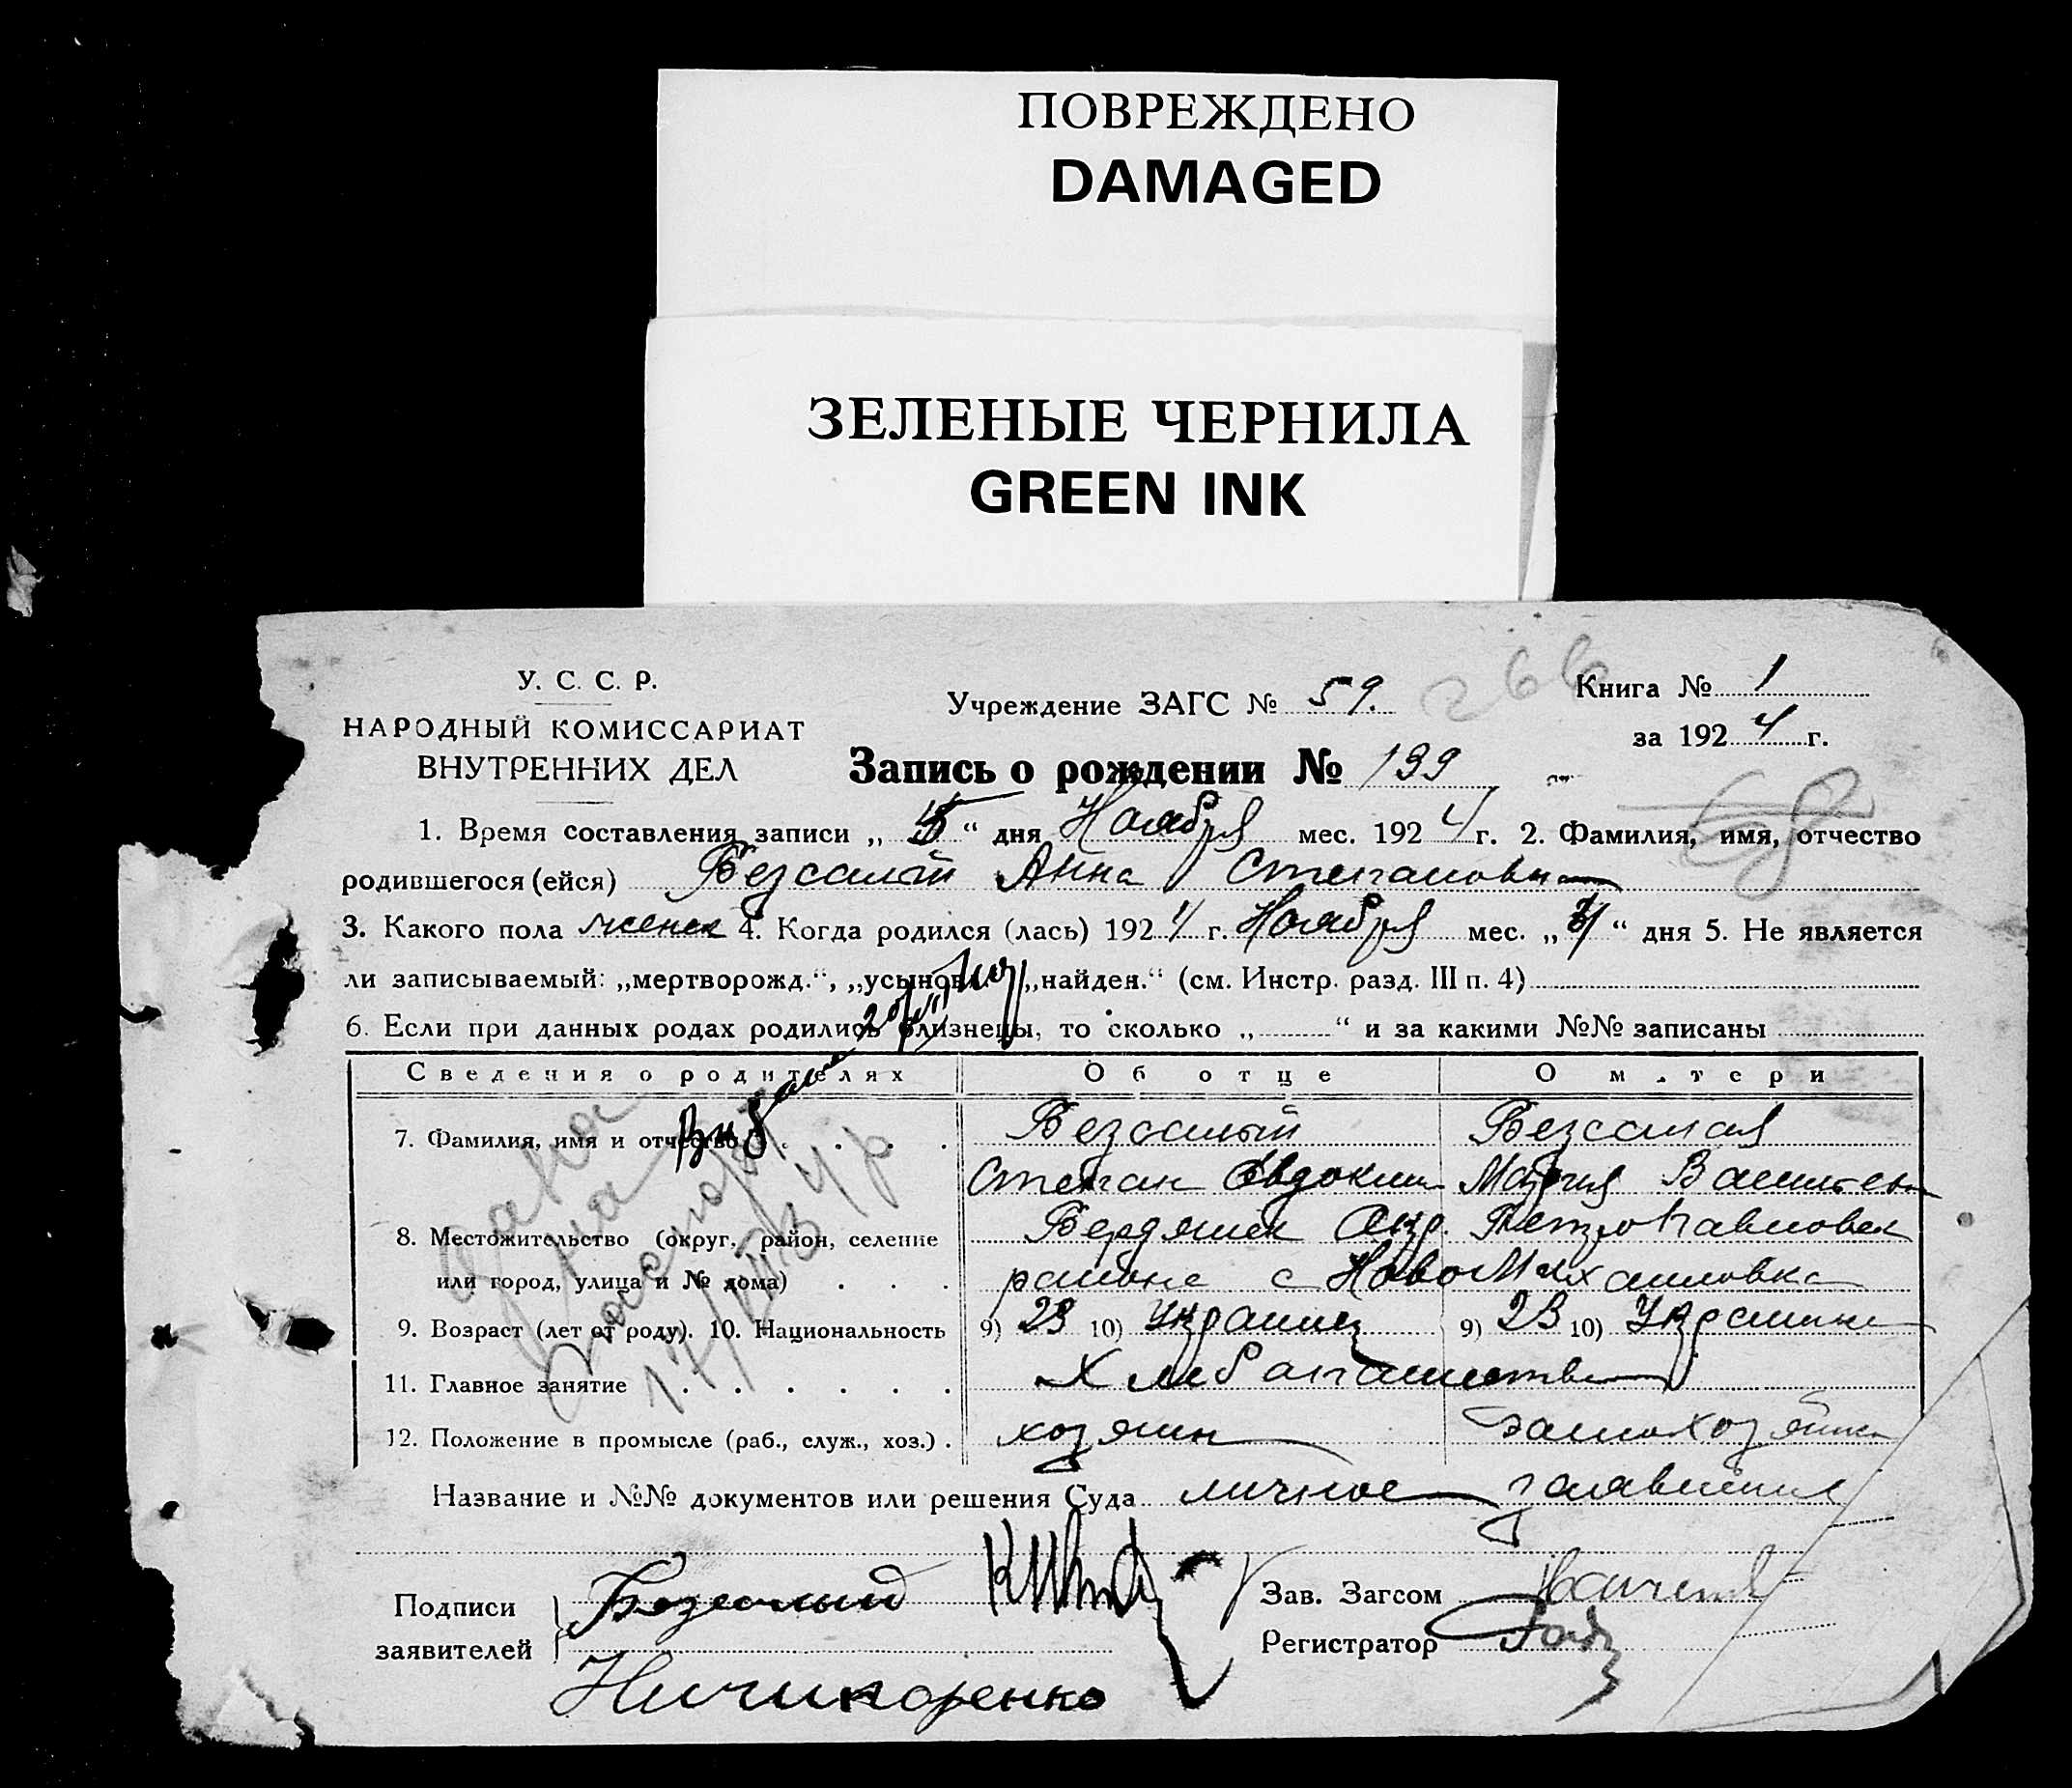 ПОВРЕЖДЕНО
DAMAGED
ЗЕЛЕНЫЕ ЧЕРНИЛА
GREEN INK
У. С. С. Р.
НАРОДНЫЙ КОМИССАРИАТ
ВНУТРЕННИХ ДЕЛ
Учреждение ЗАГС № 59.
266
Книга № 1
за 1924 г.
Запись о рождении № 139
68
1. Время составления записи „ “ дня Ноября мес. 1924 г. 2. Фамилия, имя, отчество
родившегося (ейся) Безсалый Анна Степановна
3. Какого пола женск 4. Когда родился (лась) 1924 г. Ноября мес. „ “ дня 5. Не является
ли записываемый: „мертворожд.“, „усынов.“ „найден.“ (см. Инстр. разд. III п. 4)
6. Если при данных родах родились близнецы, то сколько „ “ и за какими №№ записаны
Сведения о родителях Об отце О матери
7. Фамилия, имя и отчество Безсалый Безсалая
Степан Евдоким Мария Васильевн
8. Местожительство (округ, район, селение Бердянск Окр. Петропавловск
или город, улица и № дома) района с Ново Михайловка
9. Возраст (лет от роду). 10. Национальность 9) 23 10) Украинец 9) 23 10) Украинка
11. Главное занятие Хлебопашество
12. Положение в промысле (раб., служ., хоз.) хозяин домохозяйка
Название и №№ документов или решения Суда личное заявление
Подписи
заявителей
Безсалый
Ничипоренко
Зав. Загсом
Регистратор